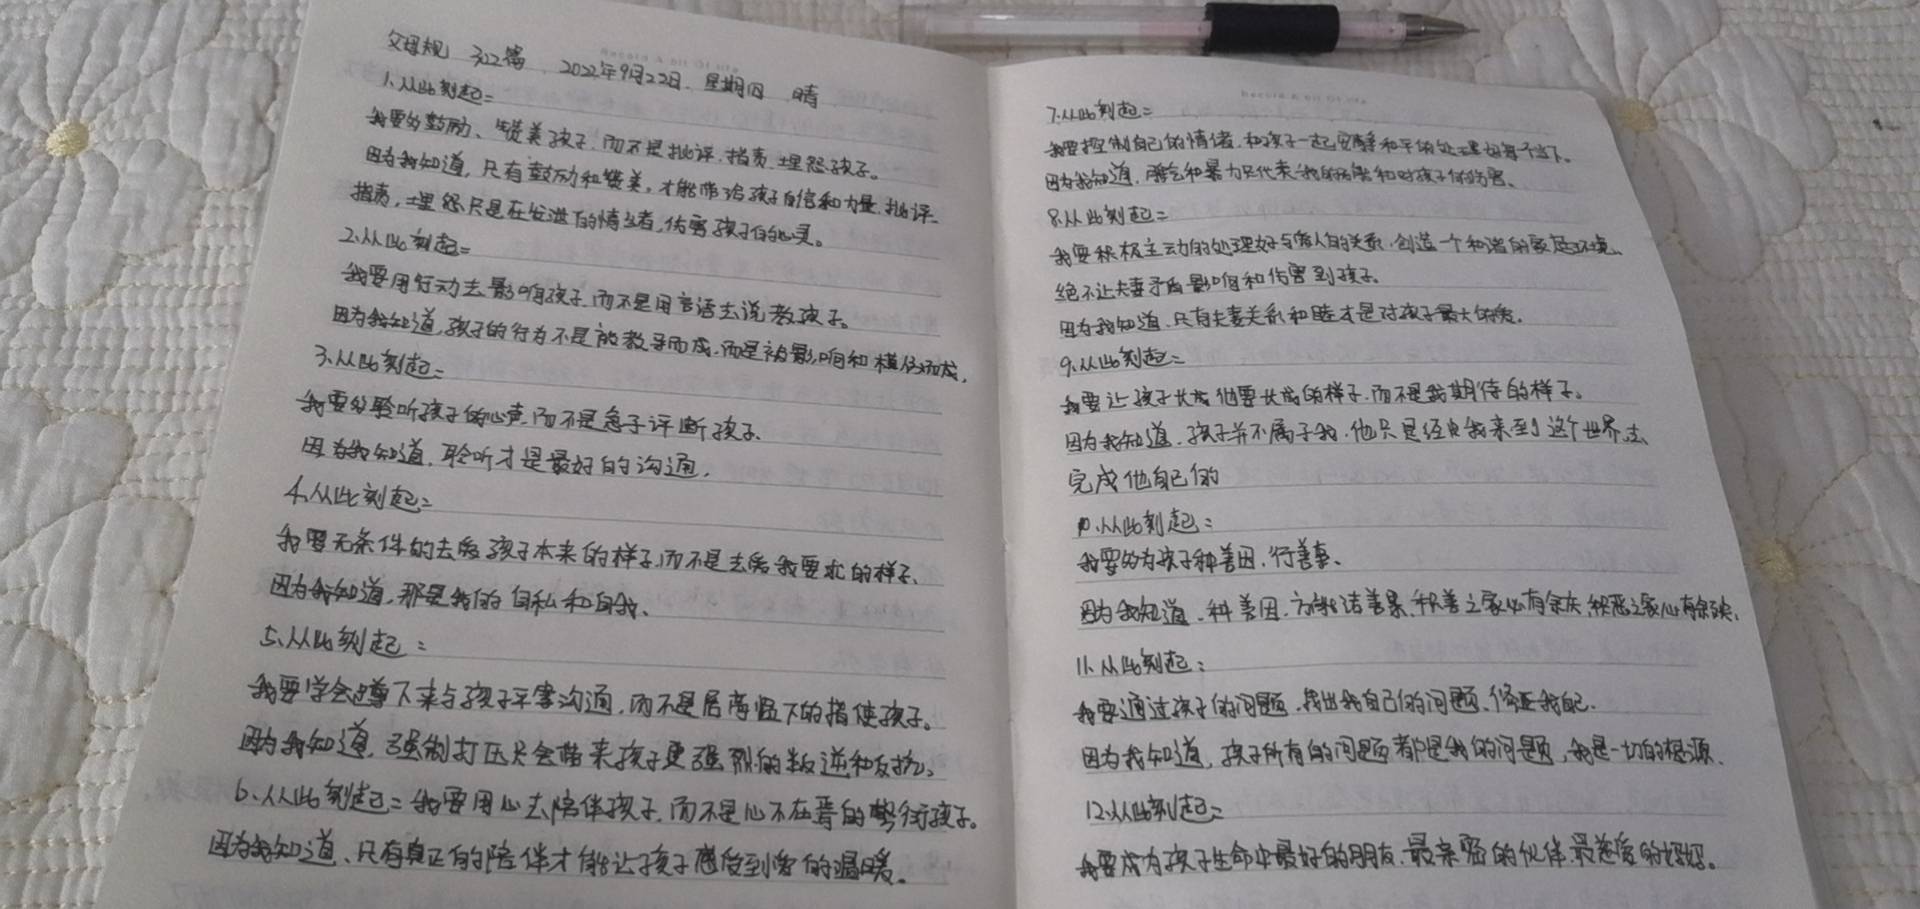 父母规 322篇 2022年9月22日 星期四 晴
1.从此刻起：
我要多鼓励、赞美孩子,而不是批评、指责、埋怨孩子。
因为我知道,只有鼓励和赞美,才能带给孩子自信和力量,批评、
指责,埋怨只是在发泄自的情绪,伤害孩子的心灵。
2.从此刻起：
我要用行动去影响孩子,而不是用言语去说教孩子。
因为我知道,孩子的行为不是被教导而成,而是被影响和模仿而成,
3.从此刻起：
我要多聆听孩子的心声,而不是急于评断孩子、
因为我知道,聆听才是最好的沟通,
4.从此刻起：
我要无条件的去爱孩子本来的样子,而不是去爱我要求的样子、
因为我知道,那是我的自私和自我、
5.从此刻起：
我要学会蹲下来与孩子平等沟通,而不是居高临下的指使孩子。
因为我知道,强制打压只会带来孩子更强烈的叛逆和反抗、
6.从此刻起：我要用心去陪伴孩子,而不是心不在焉的敷衍孩子。
因为我知道、只有真正的陪伴才能让孩子感受到爱的温暖。
7.从此刻起：
我要控制自己的情绪,和孩子一起安静和平的处理好每个当下。
因为我知道,发脾气和暴力只代表我的无能和对孩子的伤害、
8.从此刻起：
我要积极主动的处理好与家人的关系,创造一个和谐的家庭环境、
绝不让夫妻矛盾影响和伤害到孩子.
因为我知道,只有夫妻关系和睦才是对孩子最大的爱.
9.从此刻起：
我要让孩子长成他要长成的样子,而不是我期待的样子。
因为我知道,孩子并不属于我,他只是经由我来到这个世界,去
完成他自己的
10.从此刻起：
我要多为孩子种善因,行善事、
因为我知道,种善因,方能结善果、积善之家必有余庆,积恶之家必有余殃,
11.从此刻起：
我要通过孩子的问题,找出我自己的问题、修正我自己.
因为我知道,孩子所有的问题都是我的问题,我是一切的根源.
12.从此刻起：
我要成为孩子生命中最好的朋友,最亲密的伙伴,最慈爱的妈妈。